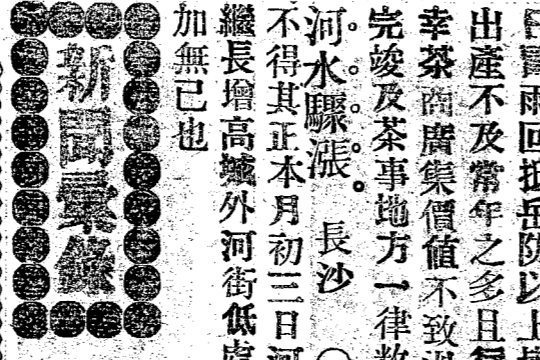 雨回抵岳防以上
出產不及常年之多且
幸茶商廣集價值不致
完竣及茶事地方一律
河水驟漲。長沙〇
不得其正本月初三日河
繼長增高城外河街低
加無已也
新聞彙錄